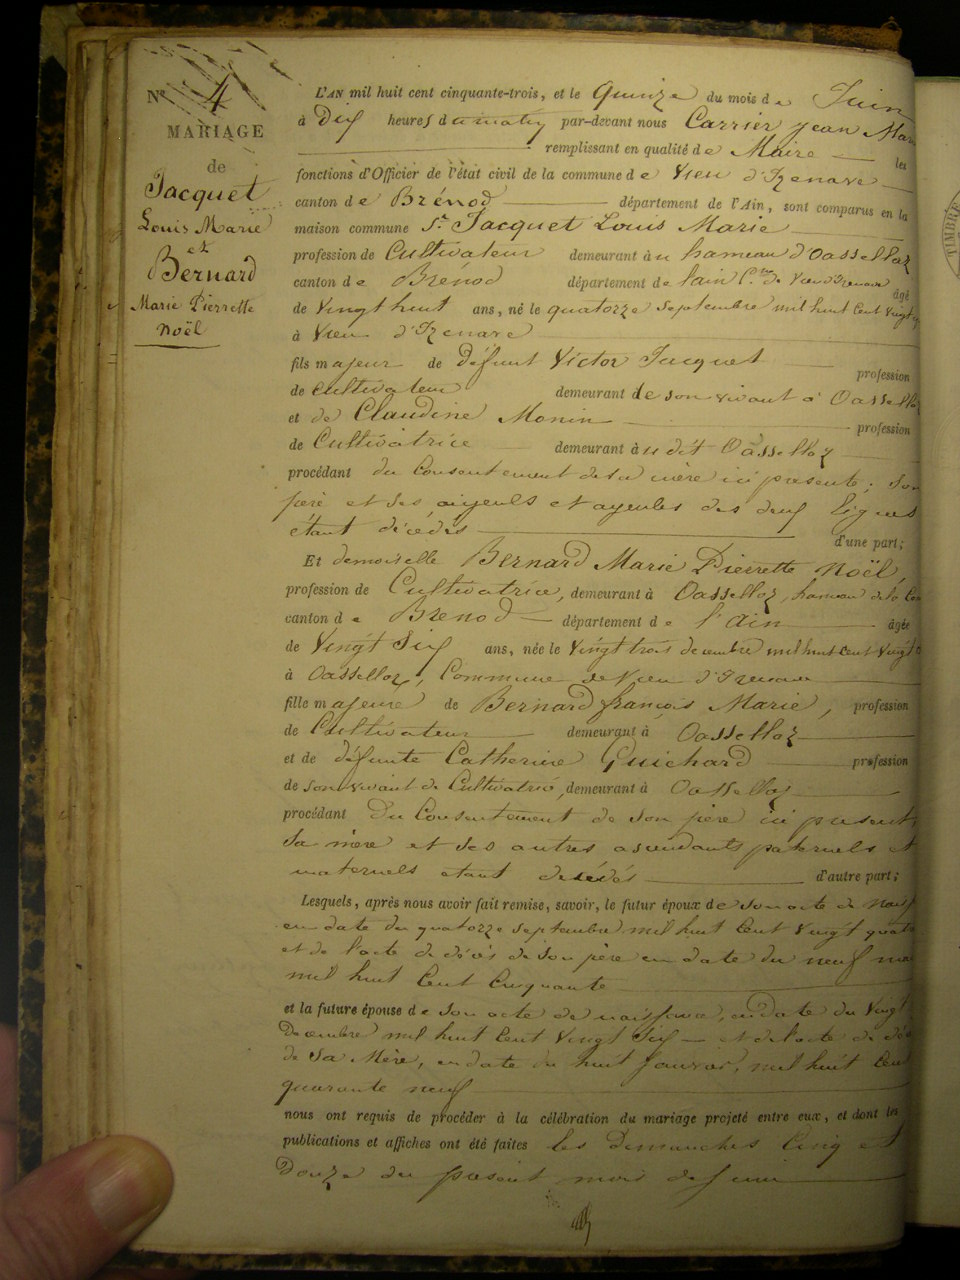 N° 4
MARIAGE
de
Jacquet
Louis Marie
et
Bernard
Marie Pierrette
Noël
L'AN mil huit cent cinquante-trois, et le Quinze du mois de Juin
à Dix heures du matin par-devant nous Carrier jean Mar
remplissant en qualité de Maire les
fonctions d'Officier de l'état civil de la commune de Vieu d'Izenave
canton de Brénod département de l'Ain, sont comparus en la
maison commune Sr Jacquet Louis Marie
profession de Cultivateur demeurant au hameau d'Oassellaz
canton de Brénod département de l'ain Cne de Vieu d'Izenave âgé
de Vingt huit ans, né le quatorze Septembre mil huit Cent vingt
à Vieu d'Izenave
fils majeur de défunt Victor Jacquet profession
de cultivateur demeurant de son vivant à Oassella
et de Claudine Monin profession
de Cultivatrice demeurant audit Oassellaz
procédant du Consentement de sa mère ici présente, son
père et ses ayeuls et ayeules des deux lignes
étant décédés d'une part;
Et demoiselle Bernard Marie Pierrette Noël,
profession de Cultivatrice, demeurant à Oassellaz, hameau de la Com
canton de Brenod département de l'Ain âgée
de Vingt Six ans, née le Vingt trois decembre mil huit Cent Vingt
à Oassellaz, Commune de Vieu d'Izenave
fille majeure de Bernard françois Marie, profession
de Cultivateur demeurant à Oassellaz
et de défunte Catherine Guichard profession
de son vivant de Cultivatrice, demeurant à Oassellaz
procédant Du Consentement de son père ici présent,
Sa mère et ses autres ascendants paternels et
maternels étant décédés d'autre part;
Lesquels, après nous avoir fait remise, savoir, le futur époux de son acte de Naiss
en date du quatorze Septembre mil huit Cent Vingt quatre
et de l'acte de décès de son père en date du neuf ma
mil huit Cent Cinquante
et la future épouse de son acte de naissance, en date du Vingt
Decembre mil huit Cent Vingt Six et de l'acte de déc
de Sa Mère, en date du huit Janvier, mil huit Cent
quarante neuf
nous ont requis de procéder à la célébration du mariage projeté entre eux, et dont les
publications et affiches ont été faites les Dimanches Cinq et
Douze du présent mois de Juin
TIMBRE